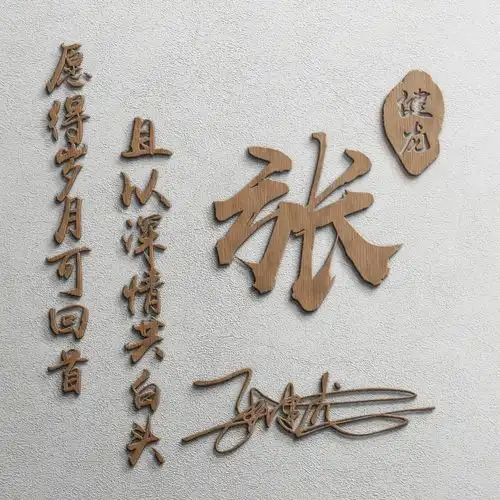 愿得岁月可回首
且以深情共白头
张
健龙